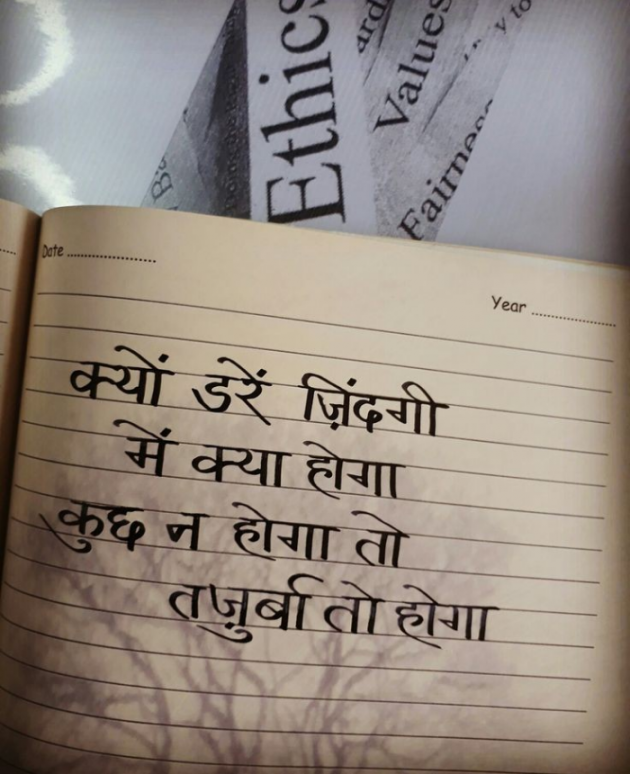 Ethics
Values
Fairness
Date
Year
क्यों डरें ज़िंदगी
में क्या होगा
कुछ न होगा तो
तज़ुर्बा तो होगा